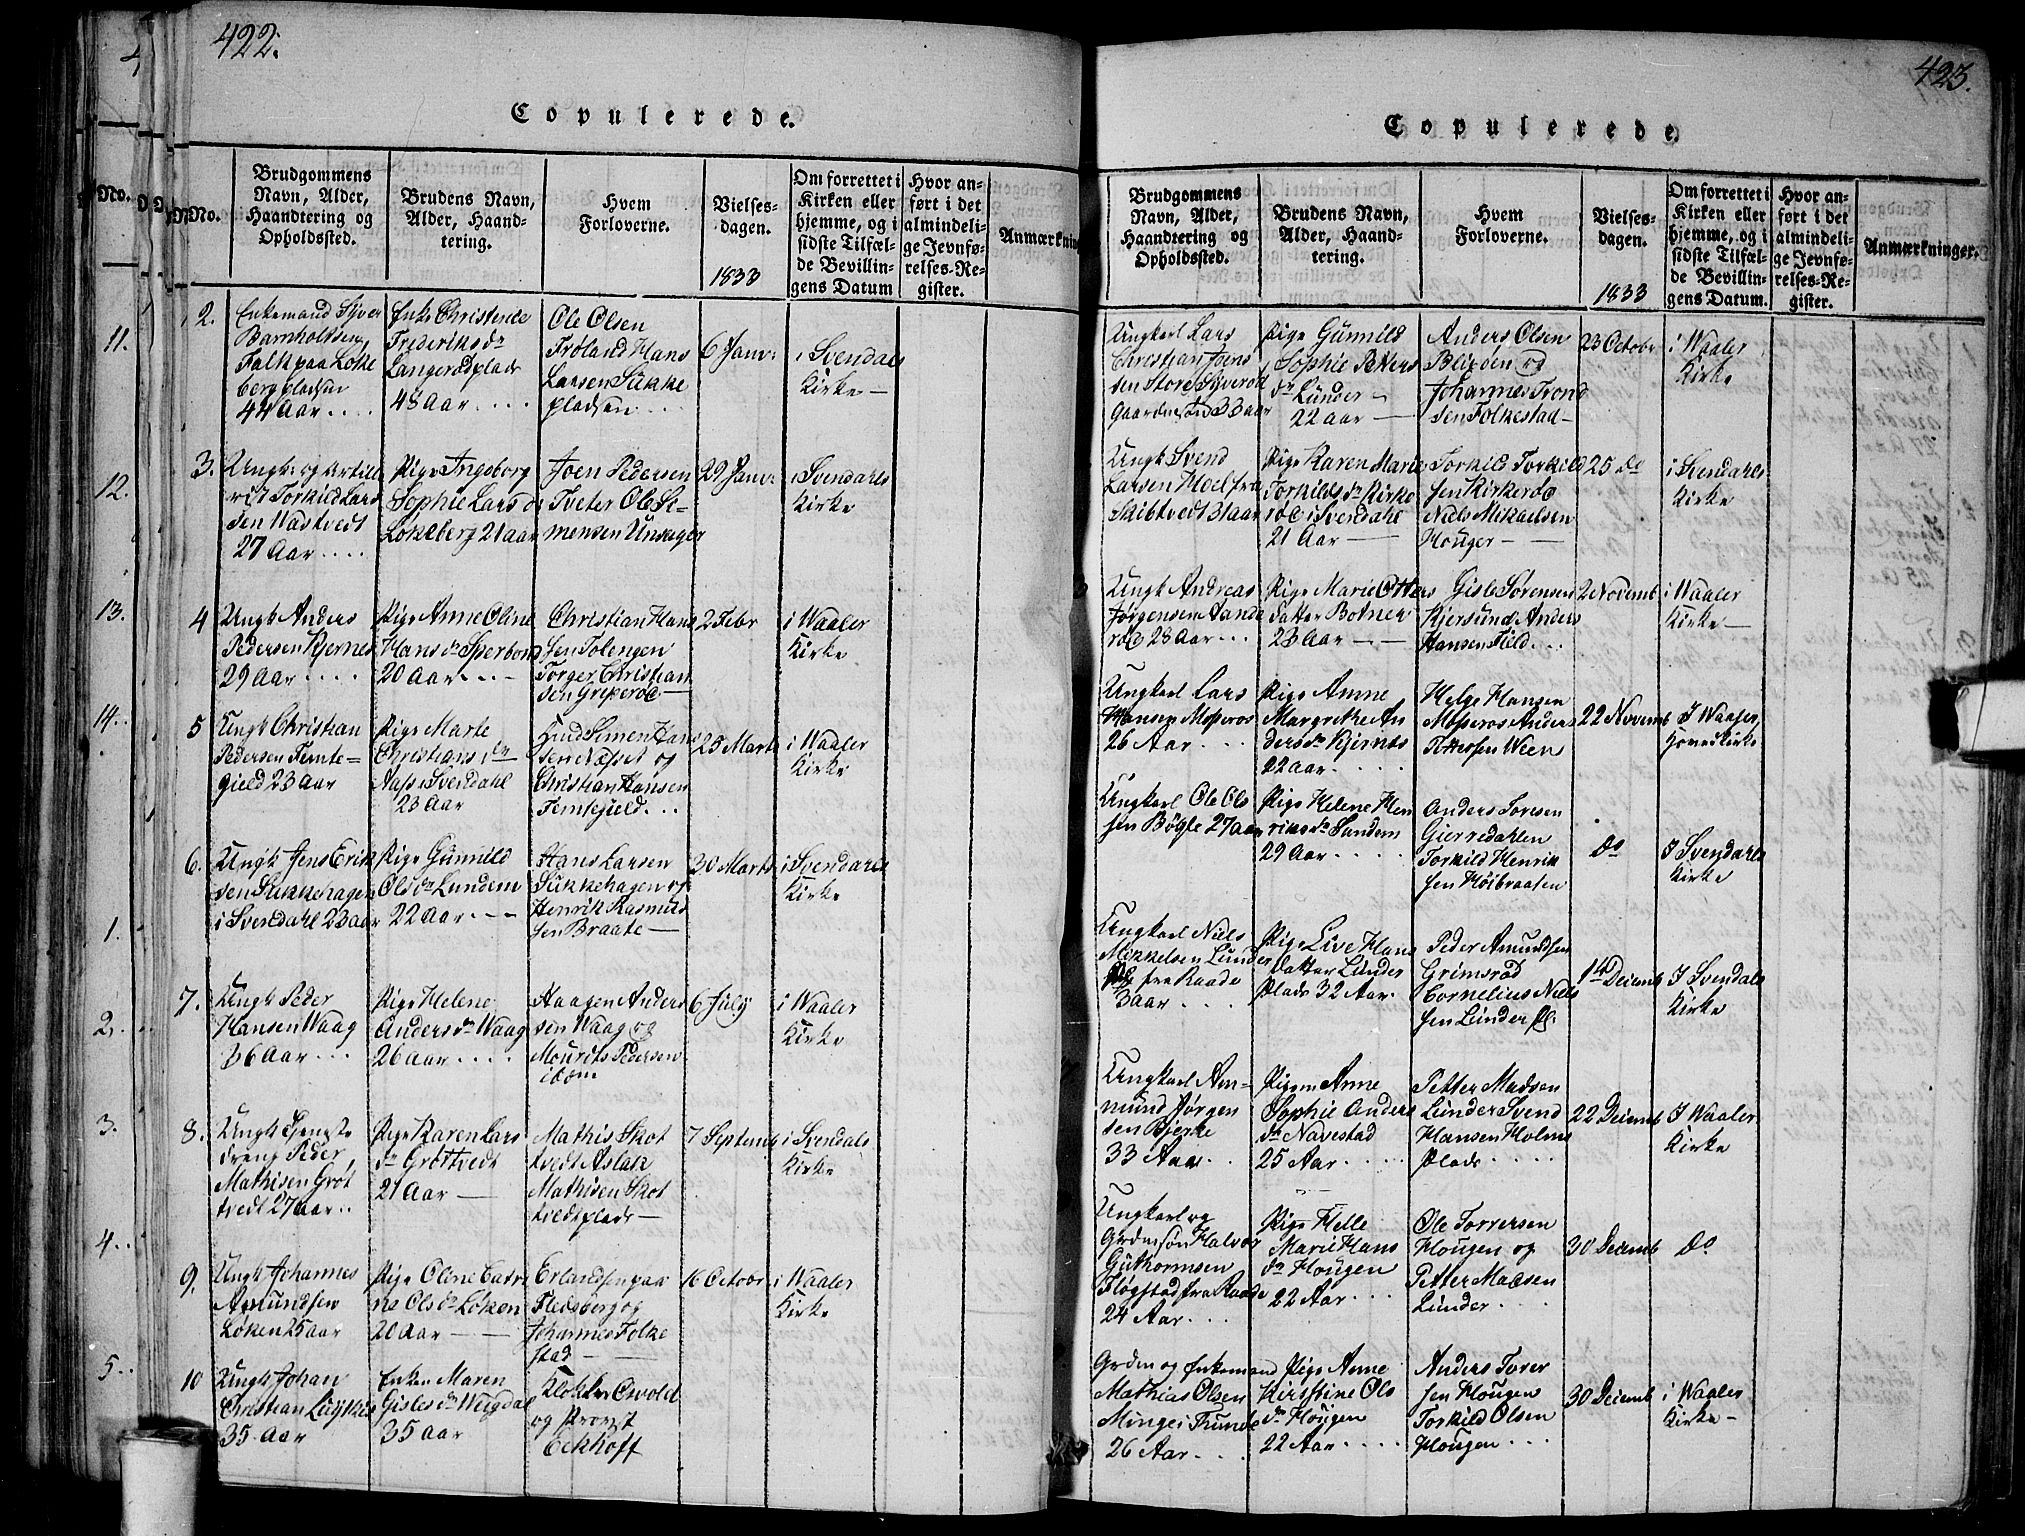 422.
Copulerede.
No.
Brudgommens
Navn, Alder,
Haandtering og
Opholdssted.
Brudens Navn,
Alder, Haand-
tering.
Hvem
Forloverne.
Vielses-
dagen.
1833
Om forrettet i
Kirken eller
hjemme, og i
sidste Tilfæl-
de Bevillin-
gens Datum
Hvor an-
ført i det
almindeli-
ge Jevnfø-
relses-Re-
gister.
Anmærknin
2.
Enkemand Syver
Barnholdsen
Falk paa Løke
berg pladsen
44 Aar
Enke Christense
Frederiksdr
Langerødplads
48 Aar
Ole Olsen
Frøland Hans
Larsen Sukke
pladsen
6 Janv:
i Svendals
Kirke
3.
Ungk: og Artille
rist Torkild Lars
sen Wastvedt
27 Aar
Pige Ingeborg
Sophie Lars dr
Løkeberg 21 aar
Joen Pedersen
Tveter Ole Si-
mensen Unsager
29 Janv:
i Svendals
Kirke
4
Ungk Anders
Pedersen Kjernes
29 Aar
Pige Anne Oline
Hans dr Sperbond
20 Aar
Christian Hans
sen Folengen
Torger Christian
sen Griperød
2 Febr
i Waaler
Kirke
5
Ungk Christian
Pedersen Femte=
gield 23 Aar
Pige Marte
Christians dr
Aas i Svendahl
23 Aar
Simen Hans
sen og
Christian Hansen
Femtegield
25 Marts
i Waaler
Kirke
6.
Ungk Jens Erik
sen Sukkehagen
i Svendahl 23 aar
Pige Gunnild
Ols dr Lundem
22 Aar
Hans Larsen
Sukkehagen og
Henrik Rasmus
sen Braate
30 Marts
i Svendals
Kirke
7.
Ungk Peder
Hansen Waag
36 Aar
Pige Helene
Anders dr Waag
26 aar
Haagen Anders
sen Waag og
Mourits Pedersen
ibdm
6 July
i Waaler
Kirke
8.
Ungk Tjeneste
dreng Peder
Mathisen Grøt
tvedt 27 aar
Pige Karen Lars
dr Grøttvedt
21 Aar
Mathis Skot
tvedt Aslak
Mathisen Skot
tvedtplads
7 Septemb
i Svendals
Kirke
9.
Ungk Johannes
Amundsen
Løken 25 aar
Pige Oline Cathri
ne Ols dr Løken
20 Aar
Erlandsen paa
Fledsberg og
Johannes Folke
stad
16 Octobr
i Waaler
Kirke
10
Ungk Johan
Christian Lükkie
35 Aar
Enken Maren
Gisles dr Wugdal
35 aar
Klokker Oswold
og Provst
Eckhoff
11.
12.
13.
14.
1.
2.
3.
4.
5.
423.
Copulerede.
Brudgommens
Navn, Alder,
Haandtering og
Opholdssted.
Brudens Navn,
Alder, Haand-
tering.
Hvem
Forloverne.
Vielses-
dagen.
1833
Om forrettet i
Kirken eller
hjemme, og i
sidste Tilfæl-
de Bevillin-
gens Datum.
Hvor an-
ført i det
almindeli-
ge Jevnfø-
relses-Re-
gister.
Anmærkninger.
Ungkarl Lars
Christian Jens
sen Store Syverød
33 aar
Pige Gunnild
Sophie Petters
dr Lunder
22 aar
Anders Olsen
Blixøen og
Johannes Trond
sen Folkestad
23 Octobr
i Waaler
Kirke
Ungk Svend
Larsen Hoel fra
Skibtvedt 31 aar
Pige Karen Marie
Torkilds dr Kirke
rød i Svendahl
21 Aar
Torkild Torkild
sen Kirkerød
Niels Mikaelsen
Houger
25 do
i Svendahls
Kirke
Ungk Andreas
Jørgensen Sande
rød 28 Aar
Pige Marie Otters
datter Botner
23 Aar
Gisle Sørensen
Kjersund Anders
Hansen Field
2 Novemb
i Waaler
Kirke
Ungkarl Lars
Hansen Moserøs
26 Aar
Pige Anne
Margrethe An
ders dr Kjernes
22 aar
Helge Hansen
Moserøs Anders
Ottersen Ween
22 Novemb
I Waaler
Hovedkirke
Ungkarl Ole Ols
sen Bøgle 27 aar
Pige Helene Hen
riks dr Sundem
29 Aar
Anders Toresen
Gierredahlen
Torkild Henrik
sen Høibraaten
do
I Svendahls
Kirke
Ungkarl Niels
Mikkelsen Lunder
fra Raade
Pige Live Hans
datter Lunder
Plads 32 Aar.
Peder Amundsen
Grimsrød
Cornelius Niels
sen Lunder Pl:
14 Decemb
I Svendals
Kirke
Ungkarl Am-
mund Jørgen
sen Bjerke
33 Aar
Pigen Anne
Sophie Anders
dr Navestad
25 Aar
Petter Madsen
Lunder Svend
Hansen Holms
Plads
22 Decemb
I Waaler
Kirke
Ungkarl og
Grdm søn Halvor
Guthormsen
Fløgstad fra Raade
24 Aar
Pige Helle
Marie Hans
dr Hougen
22 Aar
Ole Torrersen
Hougen og
Petter Madsen
Lunder
30 Decemb
do
Grdm og Enkemand
Mathias Olsen
Minge i Tunde
26 Aar
Pige Anne
Kirstine Ols
dr Hougen
22 Aar
Anders Torer
sen Hougen
Torkild Olsen
Hougen
30 Decemb
i Waaler
Kirke